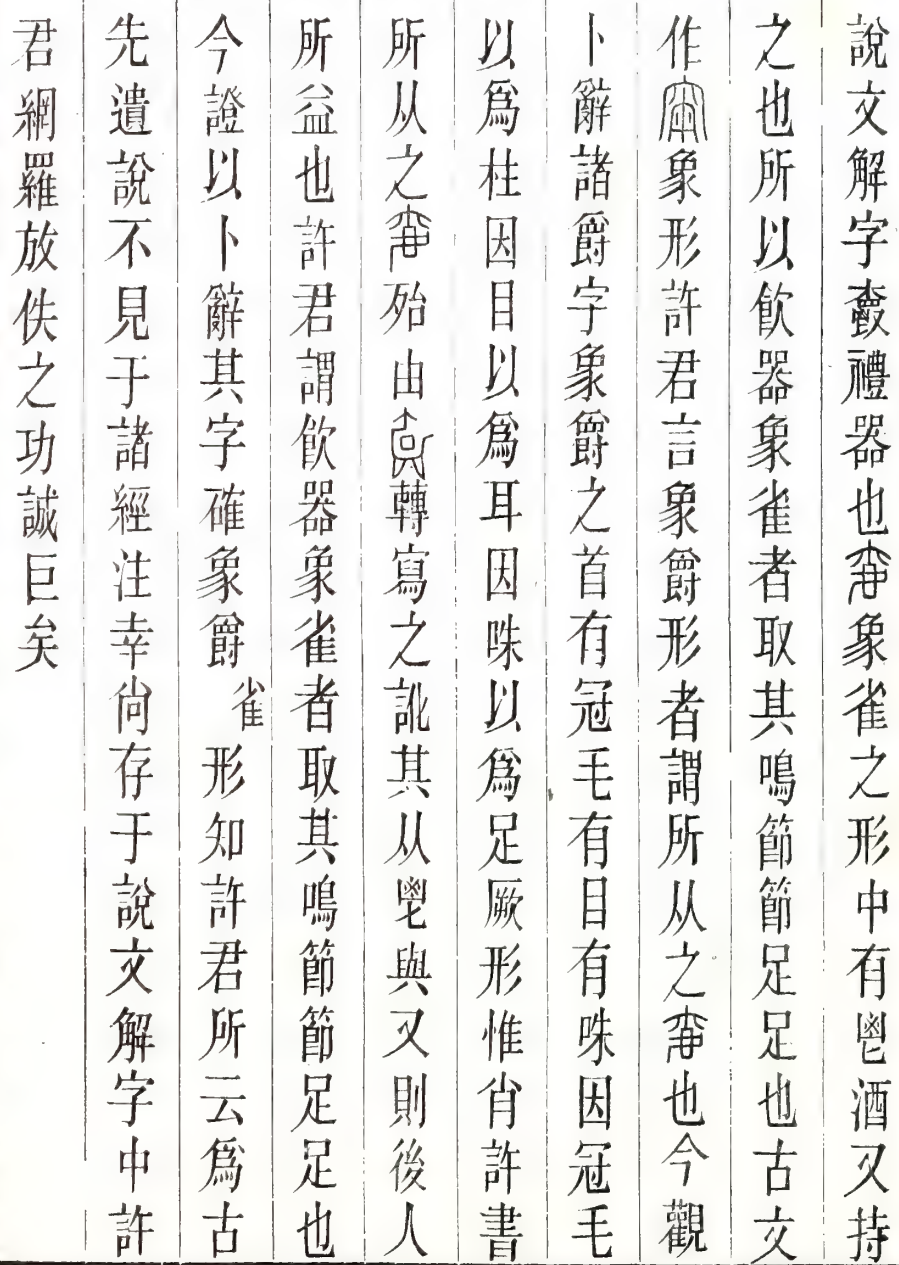 說文解字𣝣禮器也象雀之形中有鬯酒又持
之也所以飲器象雀者取其鳴節節足足也古文
作象形許君言象爵形者謂所从之也今觀
卜辭諸爵字象爵之首有冠毛有目有咮因冠毛
以爲柱因目以爲耳因咮以爲足厥形惟肖許書
所从之殆由轉寫之訛其从鬯與又則後人
所益也許君謂飲器象雀者取其鳴節節足足也
今證以卜辭其字確象爵雀形知許君所云爲古
先遺說不見于諸經注幸尙存于說文解字中許
君網羅放佚之功誠巨矣